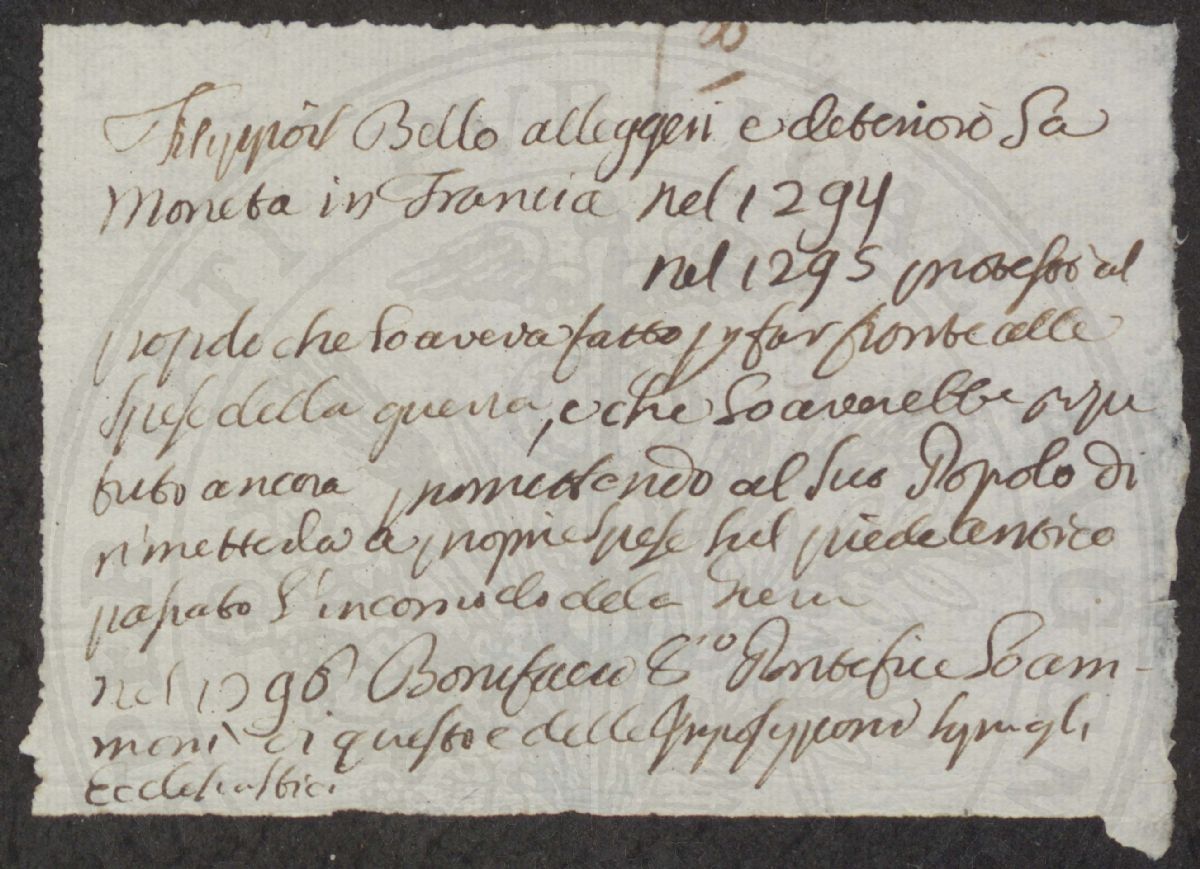 Filippo il Bello alleggerì e deteriorò la
Moneta in Francia nel 1294
nel 1295 protestò al
popolo che lo aveva fatto p far fronte alle
spese della guerra, e che lo averebbe
ancora promettendo al suo Popolo di
rimetterla a proprie spese sul piede antico
passato l'incomodo dela
nel 1296 Bonifacio 8.vo Pontefice lo am-
monì di questo e delle sopra gli
Ecclesiastici